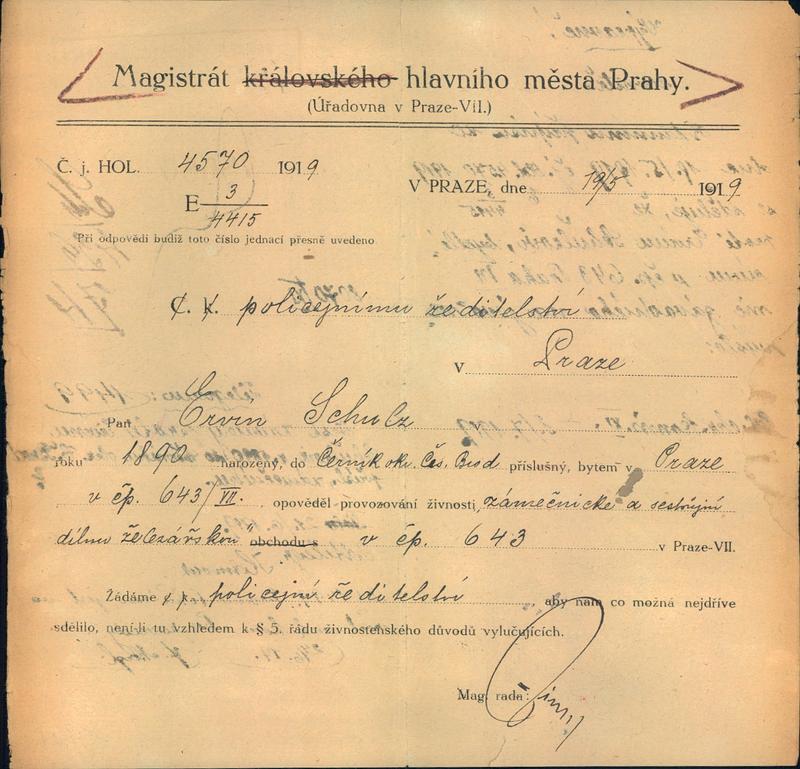 Magistrát královského hlavního města Prahy.
(Úřadovna v Praze-VII.)
Č. j. HOL. 4570 1919
E 3
4415
V PRAZE, dne 19/5 1919
Při odpovědi budiž toto číslo jednací přesně uvedeno
C. k. policejnímu ředitelství
v Praze
Pan Ervín Schulz v
roku 1890 narozený, do Černík okr. Čes. Brod příslušný, bytem v Praze
v čp. 643/VII. opověděl provozování živnosti zámečnické a sestrojní
dílnu železářskou obchodu s v čp. 643 v Praze-VII.
Žádáme c. k. policejní ředitelství, aby nám co možná nejdříve
sdělilo, není-li tu vzhledem k § 5. řádu živnostenského důvodů vylučujících.
Mag. rada: